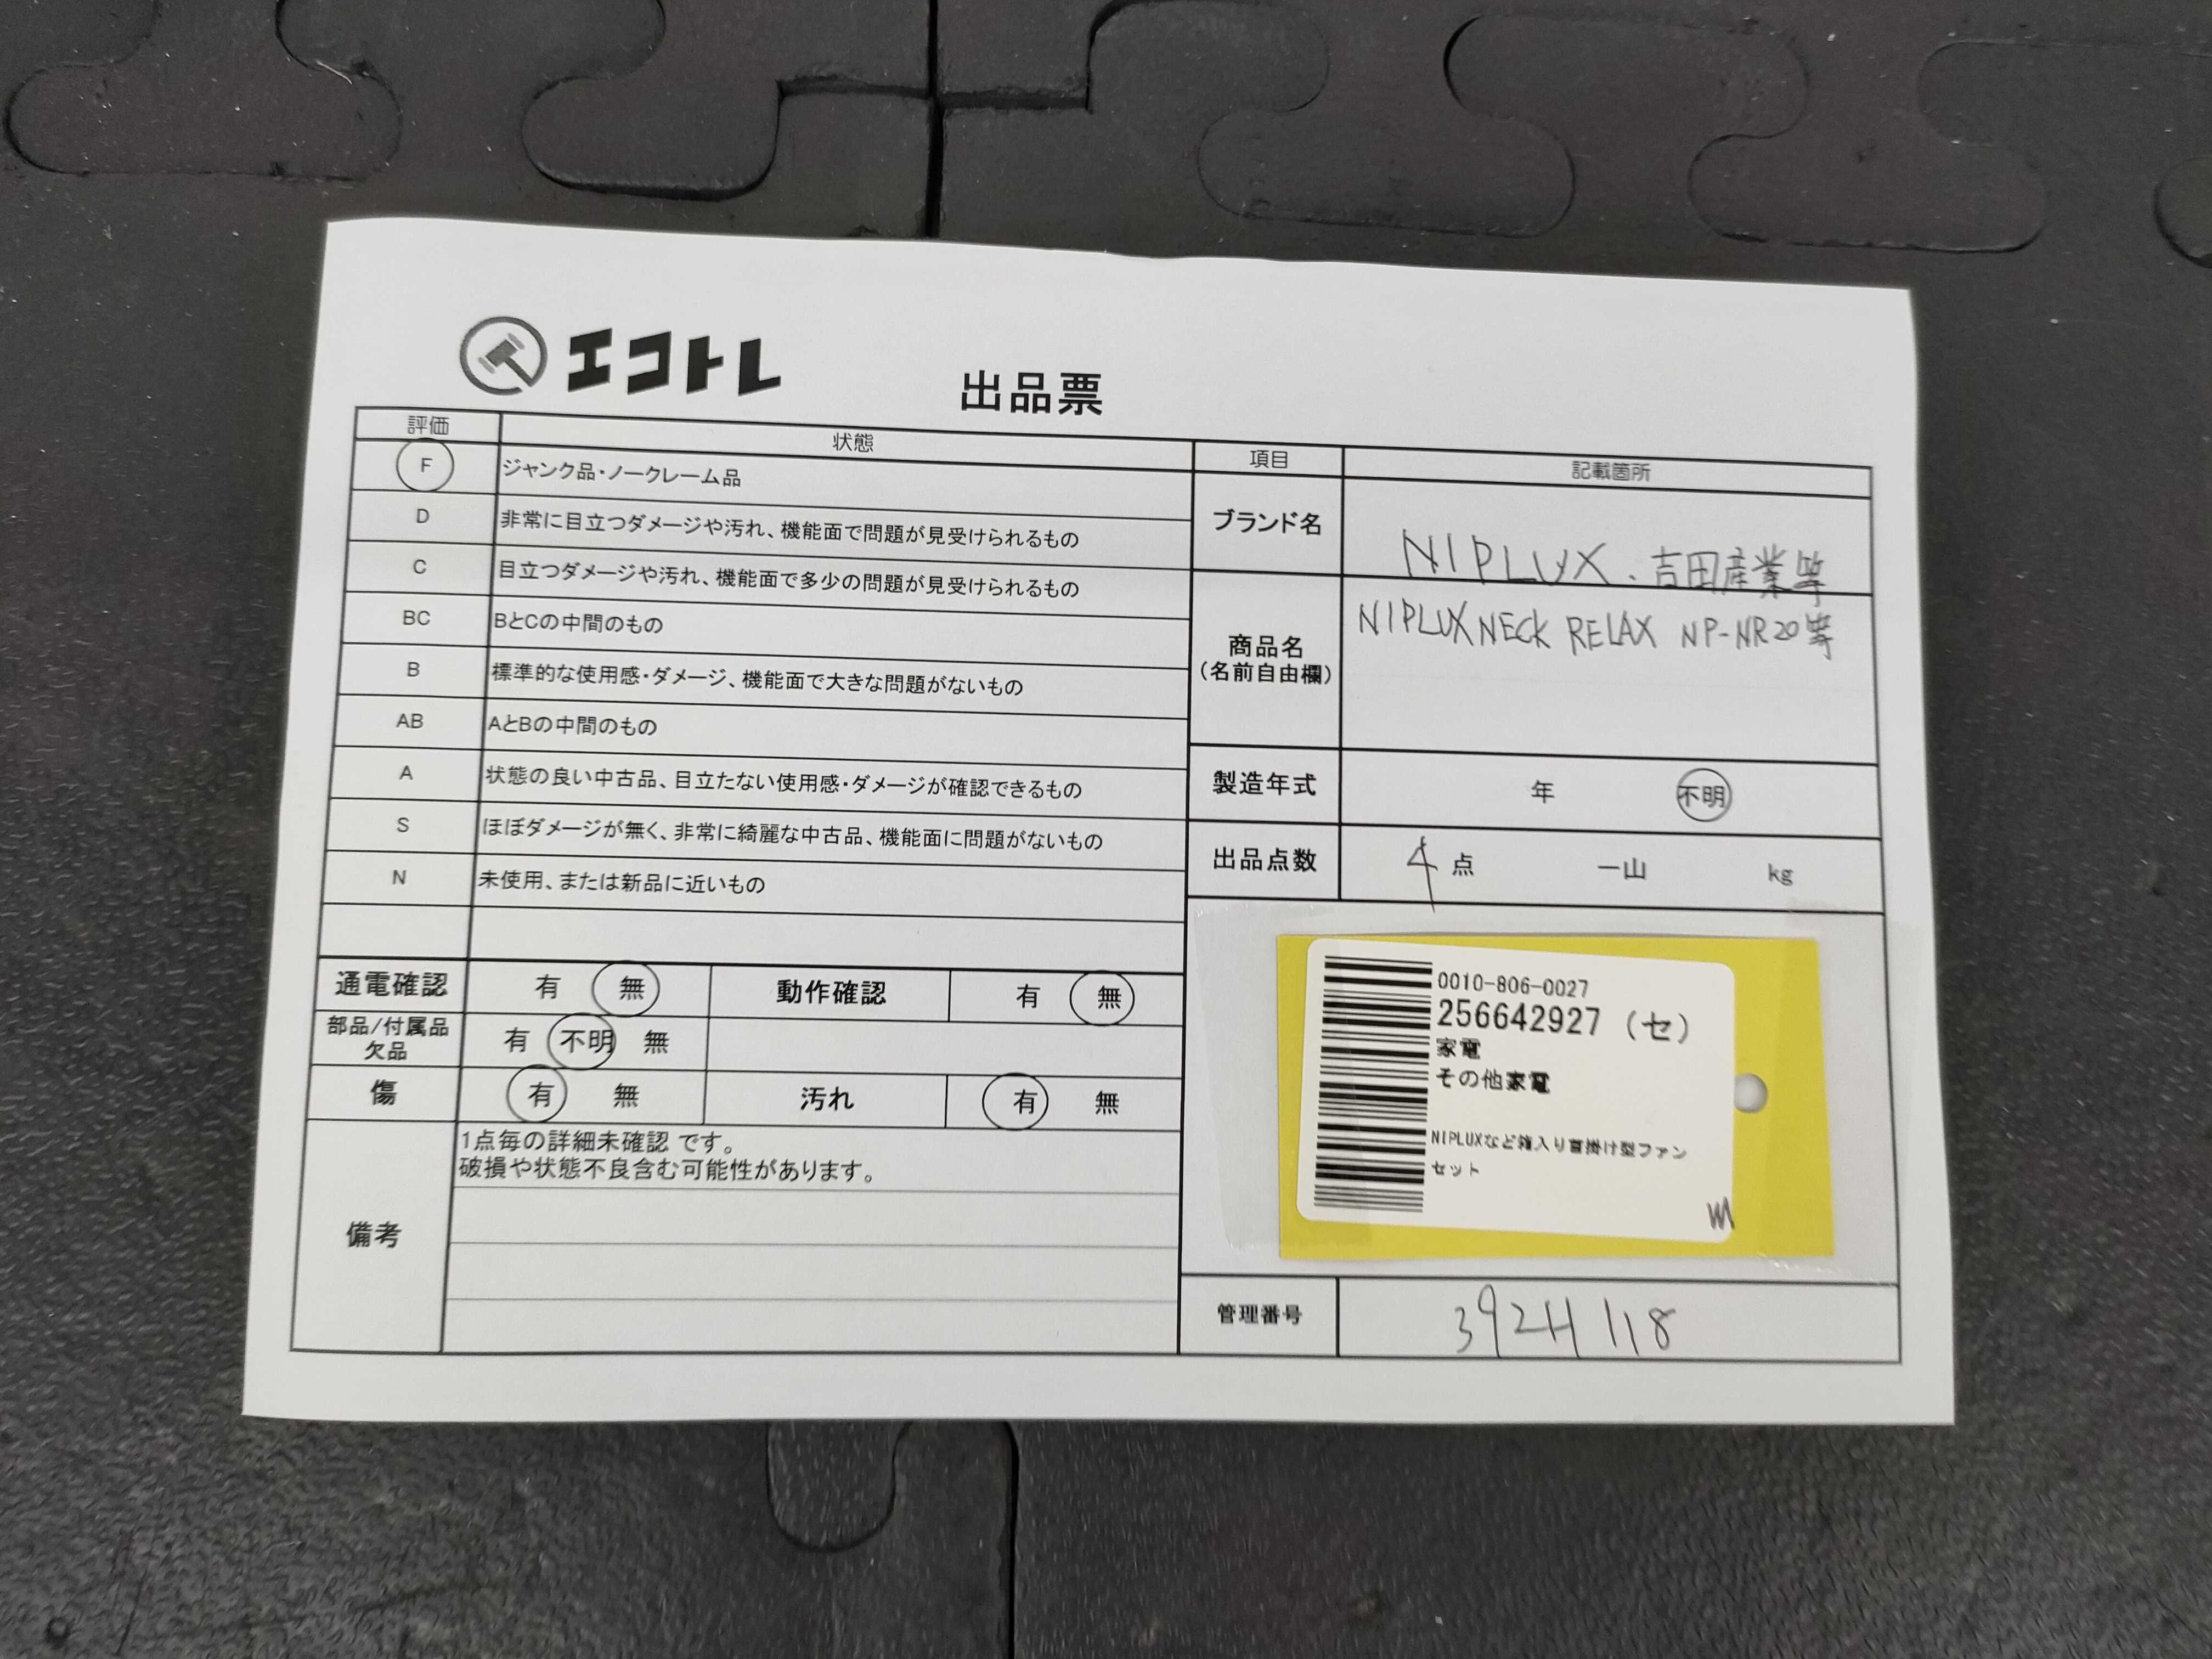 エコトレ
出品票
評価 状態
F ジャンク品・ノークレーム品
D 非常に目立つダメージや汚れ、機能面で問題が見受けられるもの
C 目立つダメージや汚れ、機能面で多少の問題が見受けられるもの
BC BとCの中間のもの
B 標準的な使用感・ダメージ、機能面で大きな問題がないもの
AB AとBの中間のもの
A 状態の良い中古品、目立たない使用感・ダメージが確認できるもの
S ほぼダメージが無く、非常に綺麗な中古品、機能面に問題がないもの
N 未使用、または新品に近いもの
通電確認 有 無 動作確認 有 無
部品/付属品
欠品 有 不明 無
傷 有 無 汚れ 有 無
備考
1点毎の詳細未確認 です。
破損や状態不良含む可能性があります。
項目 記載箇所
ブランド名 NIPLUX、吉田産業等
商品名
(名前自由欄)
NIPLUX NECK RELAX NP-NR20等
製造年式 年 不明
出品点数 4 点 一山 kg
0010-806-0027
256642927 (セ)
家電
その他家電
NIPLUXなど箱入り首掛け型ファン
セット
管理番号 392H118